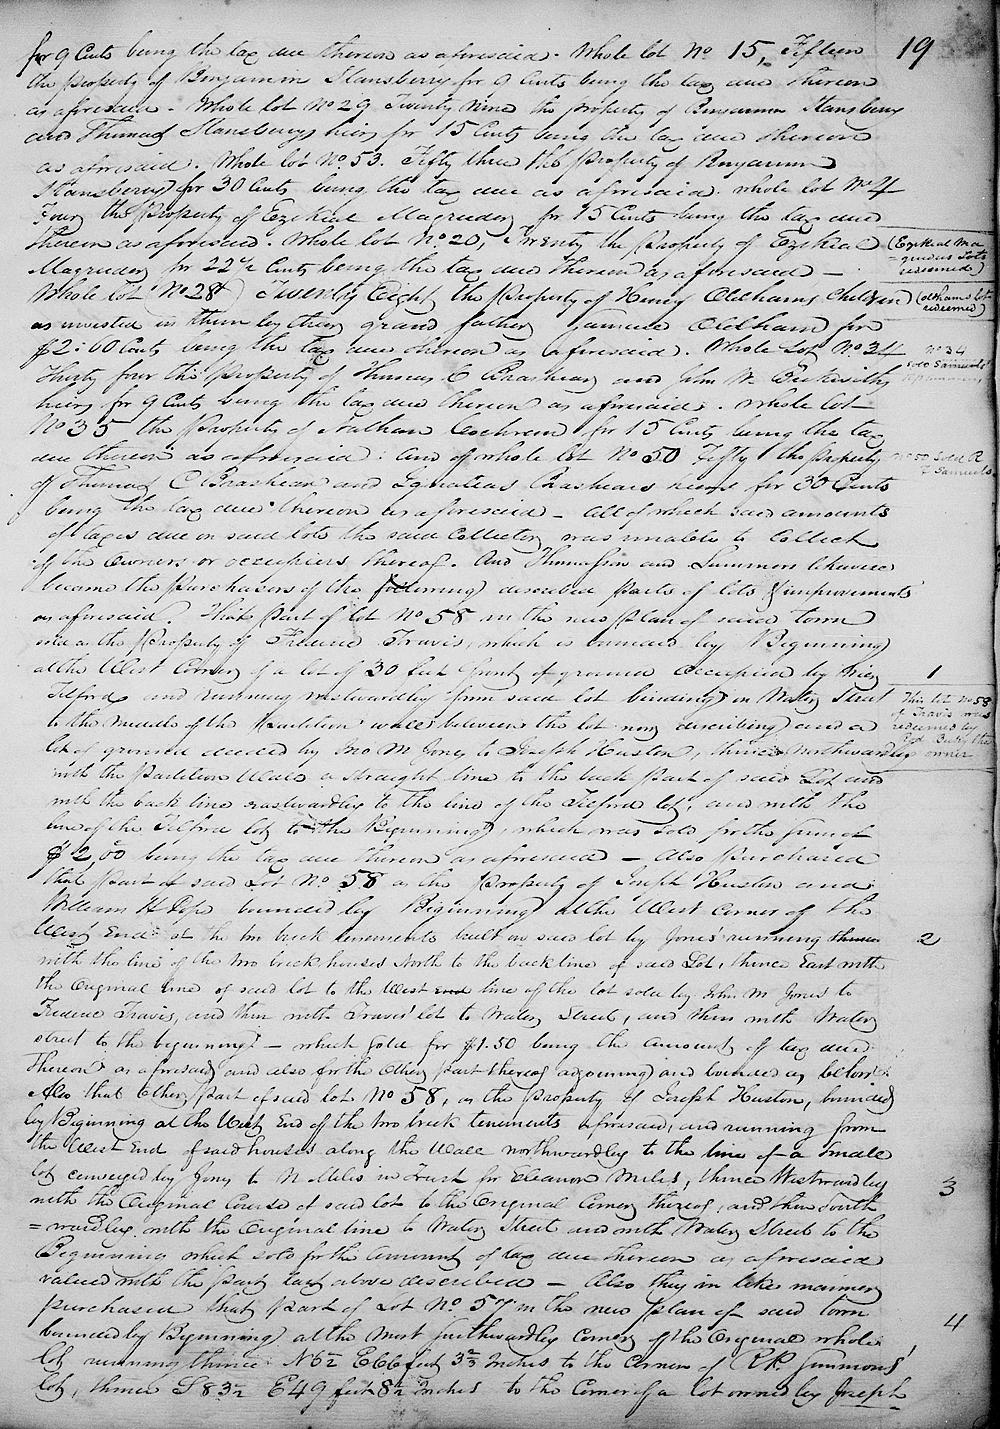 19
for 9 Cents being the tax due thereon as aforesaid. Whole lot No 15, Fifteen
the property of Benjamin Stansberry for 9 Cents being the tax due thereon
as aforesaid. Whole lot No 29 Twenty Nine the property of Benjamin Stansberry
and Thomas Stansberrys heirs for 15 Cents being the tax due thereon
as aforesaid. Whole lot No. 53. Fifty three the property of Benjamin
Stansberry for 30 Cents being the tax due as aforesaid. whole lot No 4
Four the property of Ezekial Magruder for 15 Cents being the tax due
thereon as aforesaid. Whole lot No. 20, Twenty the property of Ezekial
(Ezekial Ma
=gruders Lots
redeemed)
Magruder for 22½ Cents being the tax due thereon as aforesaid —
Whole lot (No 28) Twenty Eight the property of Henry Oldhams Children
(oldhams lot
redeemed)
as invested in them by their grand father Samuel Oldham for
$2:00 Cents being the tax due thereon as aforesaid. Whole Lot No 34
No 34
sold Samuels
Thirty four the property of Thomas C Brashear and John W. Beckwiths
heirs for 9 Cents being the tax due thereon as aforesaid. whole lot
No 35 the property of Nathan Cochrem for 15 Cents being the tax
due thereon as aforesaid: and of whole lot No 50 Fifty the property
No 50 Sold R
T Samuels
of Thomas C Brashear and Ignatius Brashears heirs for 30 Cents
being the tax due thereon as aforesaid — All of which said amounts
of taxes due on said lots the said Collector was unable to Collect
of the owners or occupiers thereof. And Thomasson and Simmons likewise
became the purchasers of the following described parts of lots & improvements
as aforesaid. That part of lot No 58 in the new plan of said town
sold as the property of Frederic Travis, which is bounded by Beginning
at the West Corner of a lot of 30 feet front of ground occupied by Mrs
1
Tilford and running westwardly from said lot binding on Water Street
This lot No 58
of Travis was
redeemed by
the
owner
to the middle of the partition wall between the lot now describing and a
lot of ground deeded by Jno M Jones to Joseph Huston, thence Northwardly
with the partition Wall a straight line to the back part of said Lot and
with the back line eastwardly to the line of the Tilford lot, and with the
line of the Tilford lot to the Beginning, which was sold for the sum of
$2,00 being the tax due thereon as aforesaid — Also purchased
that part of said Lot No 58 as the property of Joseph Huston and
William H Pope bounded by Beginning at the West corner of the
West End of the two brick tenements built on said lot by Jones running thence
2
with the line of the two brick houses North to the back line of said Lot, thence East with
the Original line of said lot to the West end line of the lot sold by John M Jones to
Frederic Travis, and then with Travis' lot to Water Street, and then with Water
street to the beginning — which sold for $1.50 being the amount of tax due
thereon as aforesaid and also for the other part thereof adjoining and bounded as below:
Also that other part of said lot No 58, as the property of Joseph Huston, bounded
by Beginning at the West End of the two brick tenements aforesaid, and running from
the West End of said houses along the Wall northwardly to the line of a small
lot conveyed by Jones to N Miles in Trust for Eleanor Miles, thence Westwardly
3
with the Original Course of said lot to the Original Corner thereof, and then South
=wardly with the Original line to Water Street and with Water Street to the
Beginning which sold for the amount of tax due thereon as aforesaid
valued with the part last above described — Also they in like manner
purchased that part of Lot No. 57 in the new plan of said town
bounded by Beginning at the most southwardly corner of the Original whole
4
lot running thence N6½ E66 feet 3½ Inches to the Corner of R.P. Simmons'
lot, thence S 83½ E49 feet 8½ Inches to the Corner of a lot owned by Joseph